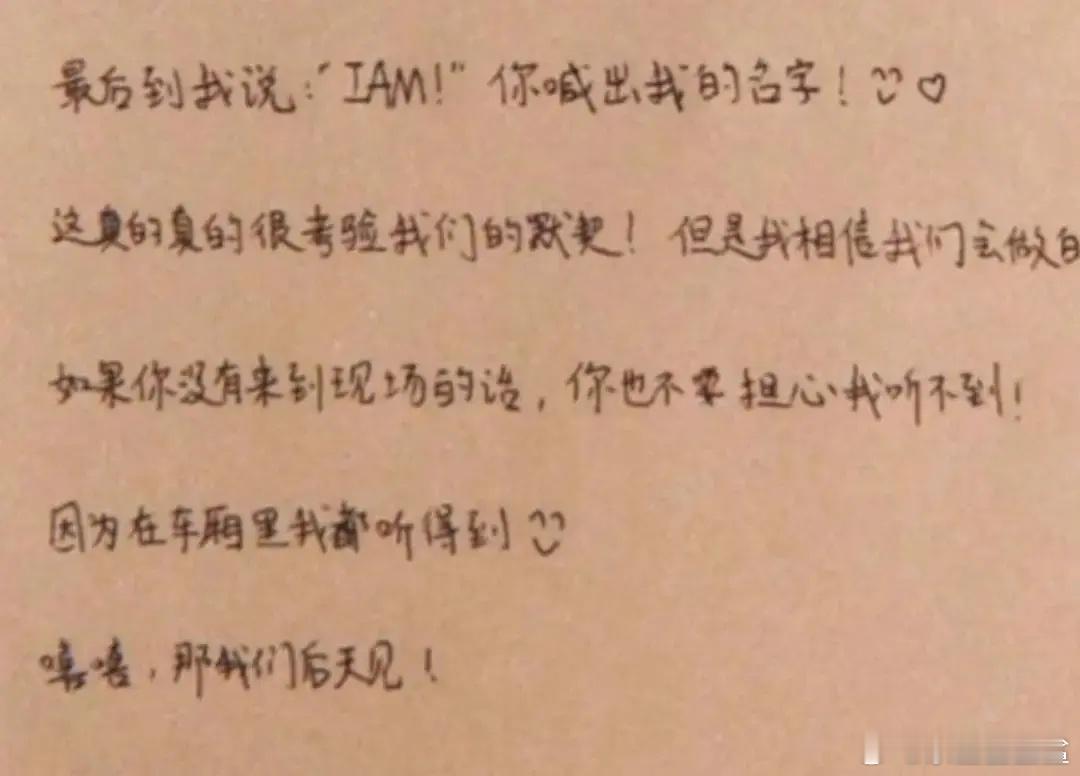 最后到我说：“IAM!” 你喊出我的名字！
这真的真的很考验我们的默契！但是我相信我们会做
如果你没有来到现场的话，你也不要担心我听不到！
因为在车厢里我都听得到
嘻嘻，那我们后天见！